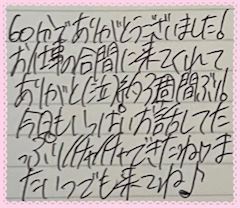 60分でありがとうございました!
お仕事の合間に来てくれて
ありがと(泣)約3週間ぶり!
今日もいっぱいお話してた
っぷりイチャイチャできたねりま
たいつでも来てね♪